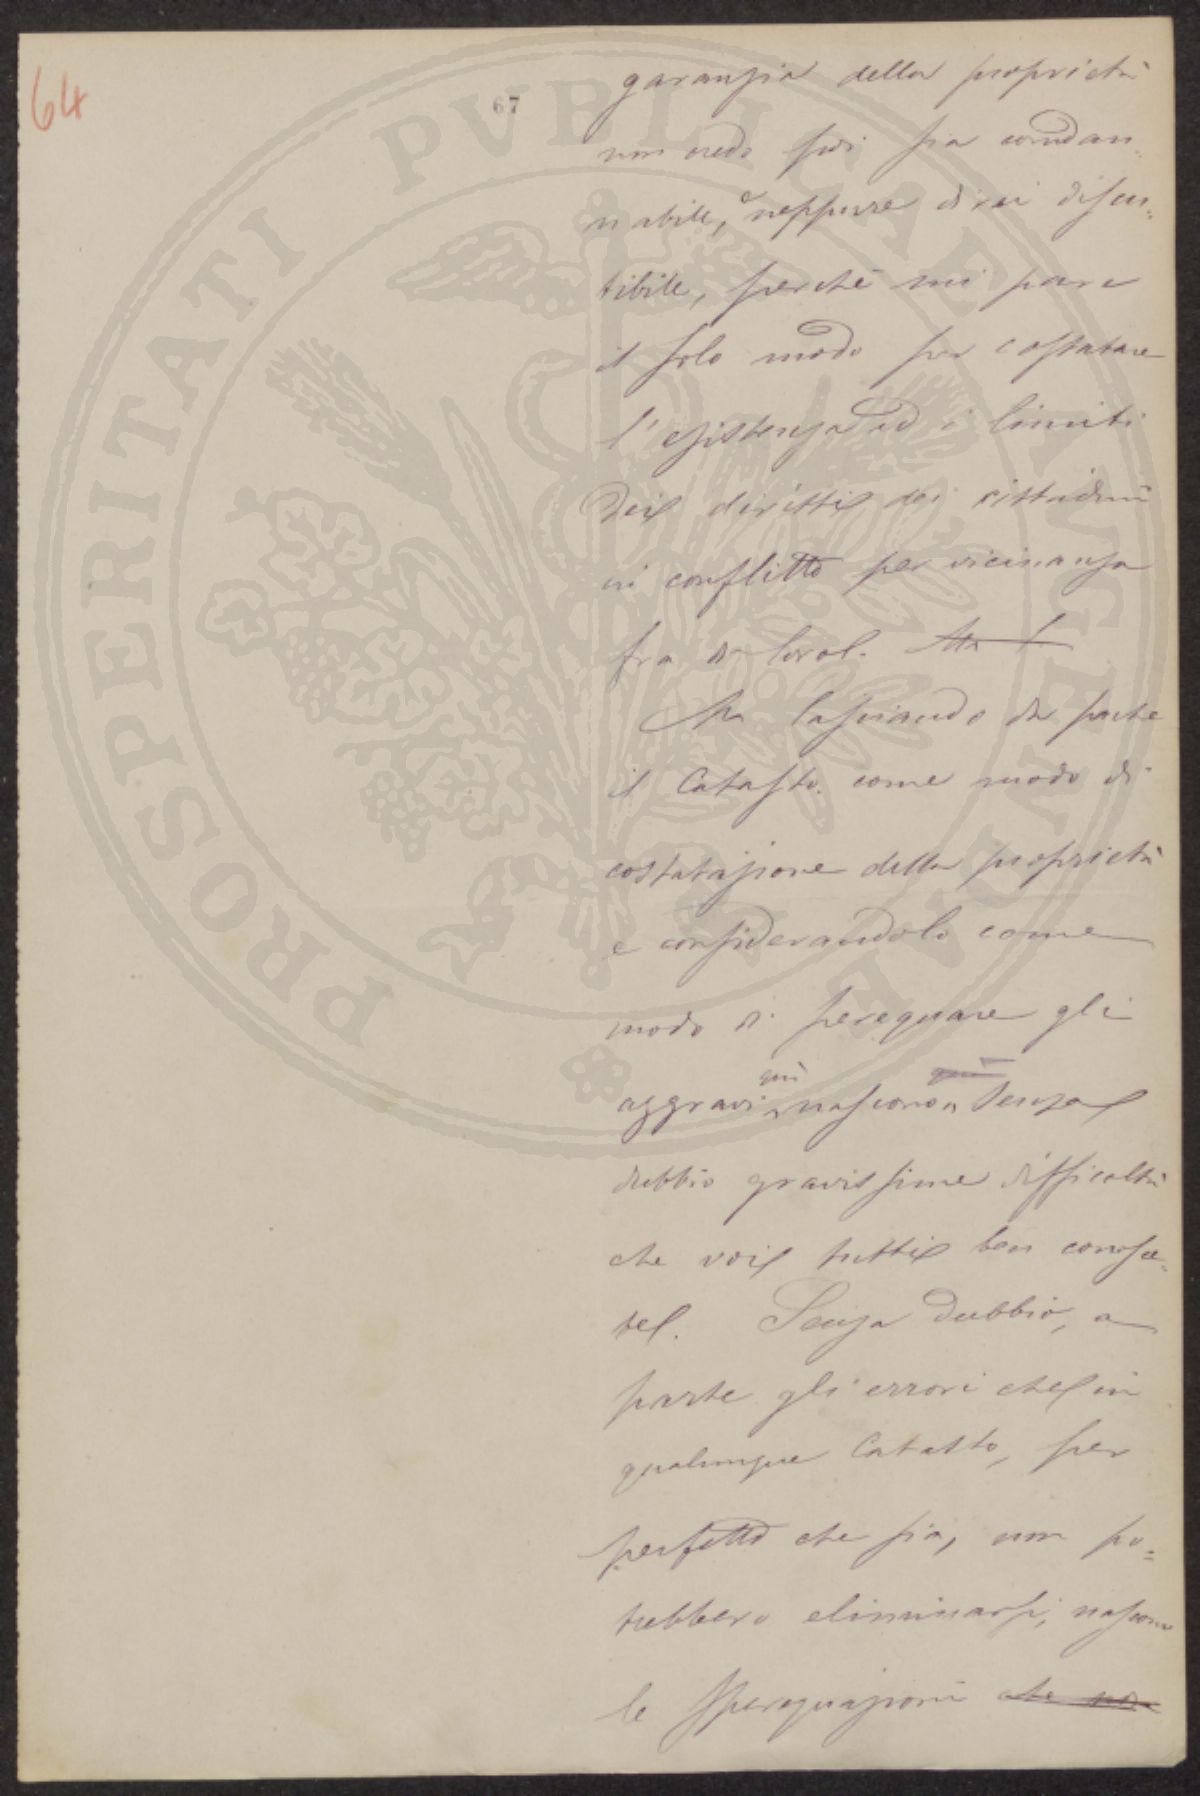 64
67
garanzia della proprietà
non credo poi sia condan-
nabile, e neppure direi discu=
tibile, perchè mi pare
il solo modo per costatare
l'esistenza ed i limiti
dei diritti dei cittadini
in conflitto per vicinanza
fra di loro. Ma l
Ma lasciando da parte
il Catasto come modo di
costatazione della proprietà
e considerandolo come
modo di perequare gli
quì quì
aggravi nascono senza
dubbio gravissime difficoltà
che voi tutti ben conosce-
te. Senza dubbio, a
parte gli errori che in
qualunque Catasto, per
perfetto che sia, non po=
trebbero eliminarsi, nascono
le sperequazioni che non
PROSPERITATI PVBLICAE AVGENDAE